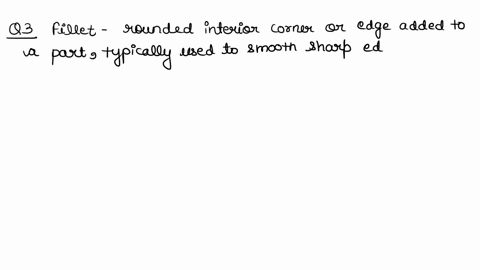 Q3 Fillet - rounded interior corner or edge added to
a part, typically used to smooth sharp ed